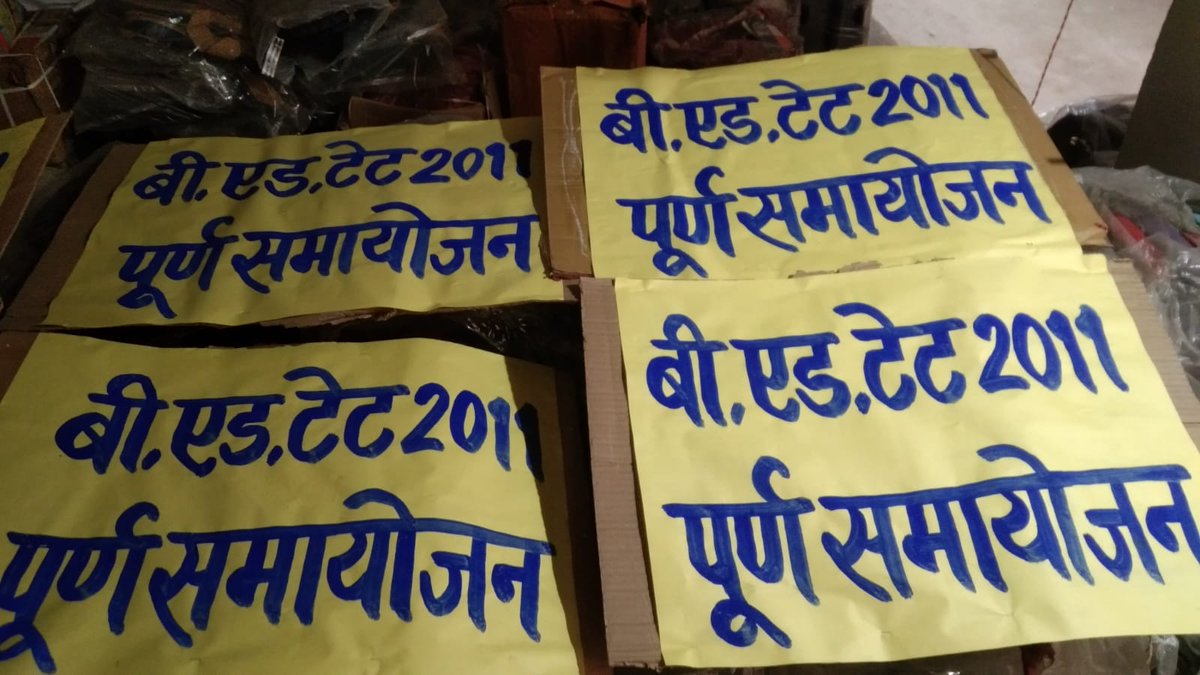 बी.एड.टेट 2011
पूर्ण समायोजन
बी.एड.टेट 2011
पूर्ण समायोजन
बी.एड.टेट 2011
पूर्ण समायोजन
बी.एड.टेट 2011
पूर्ण समायोजन